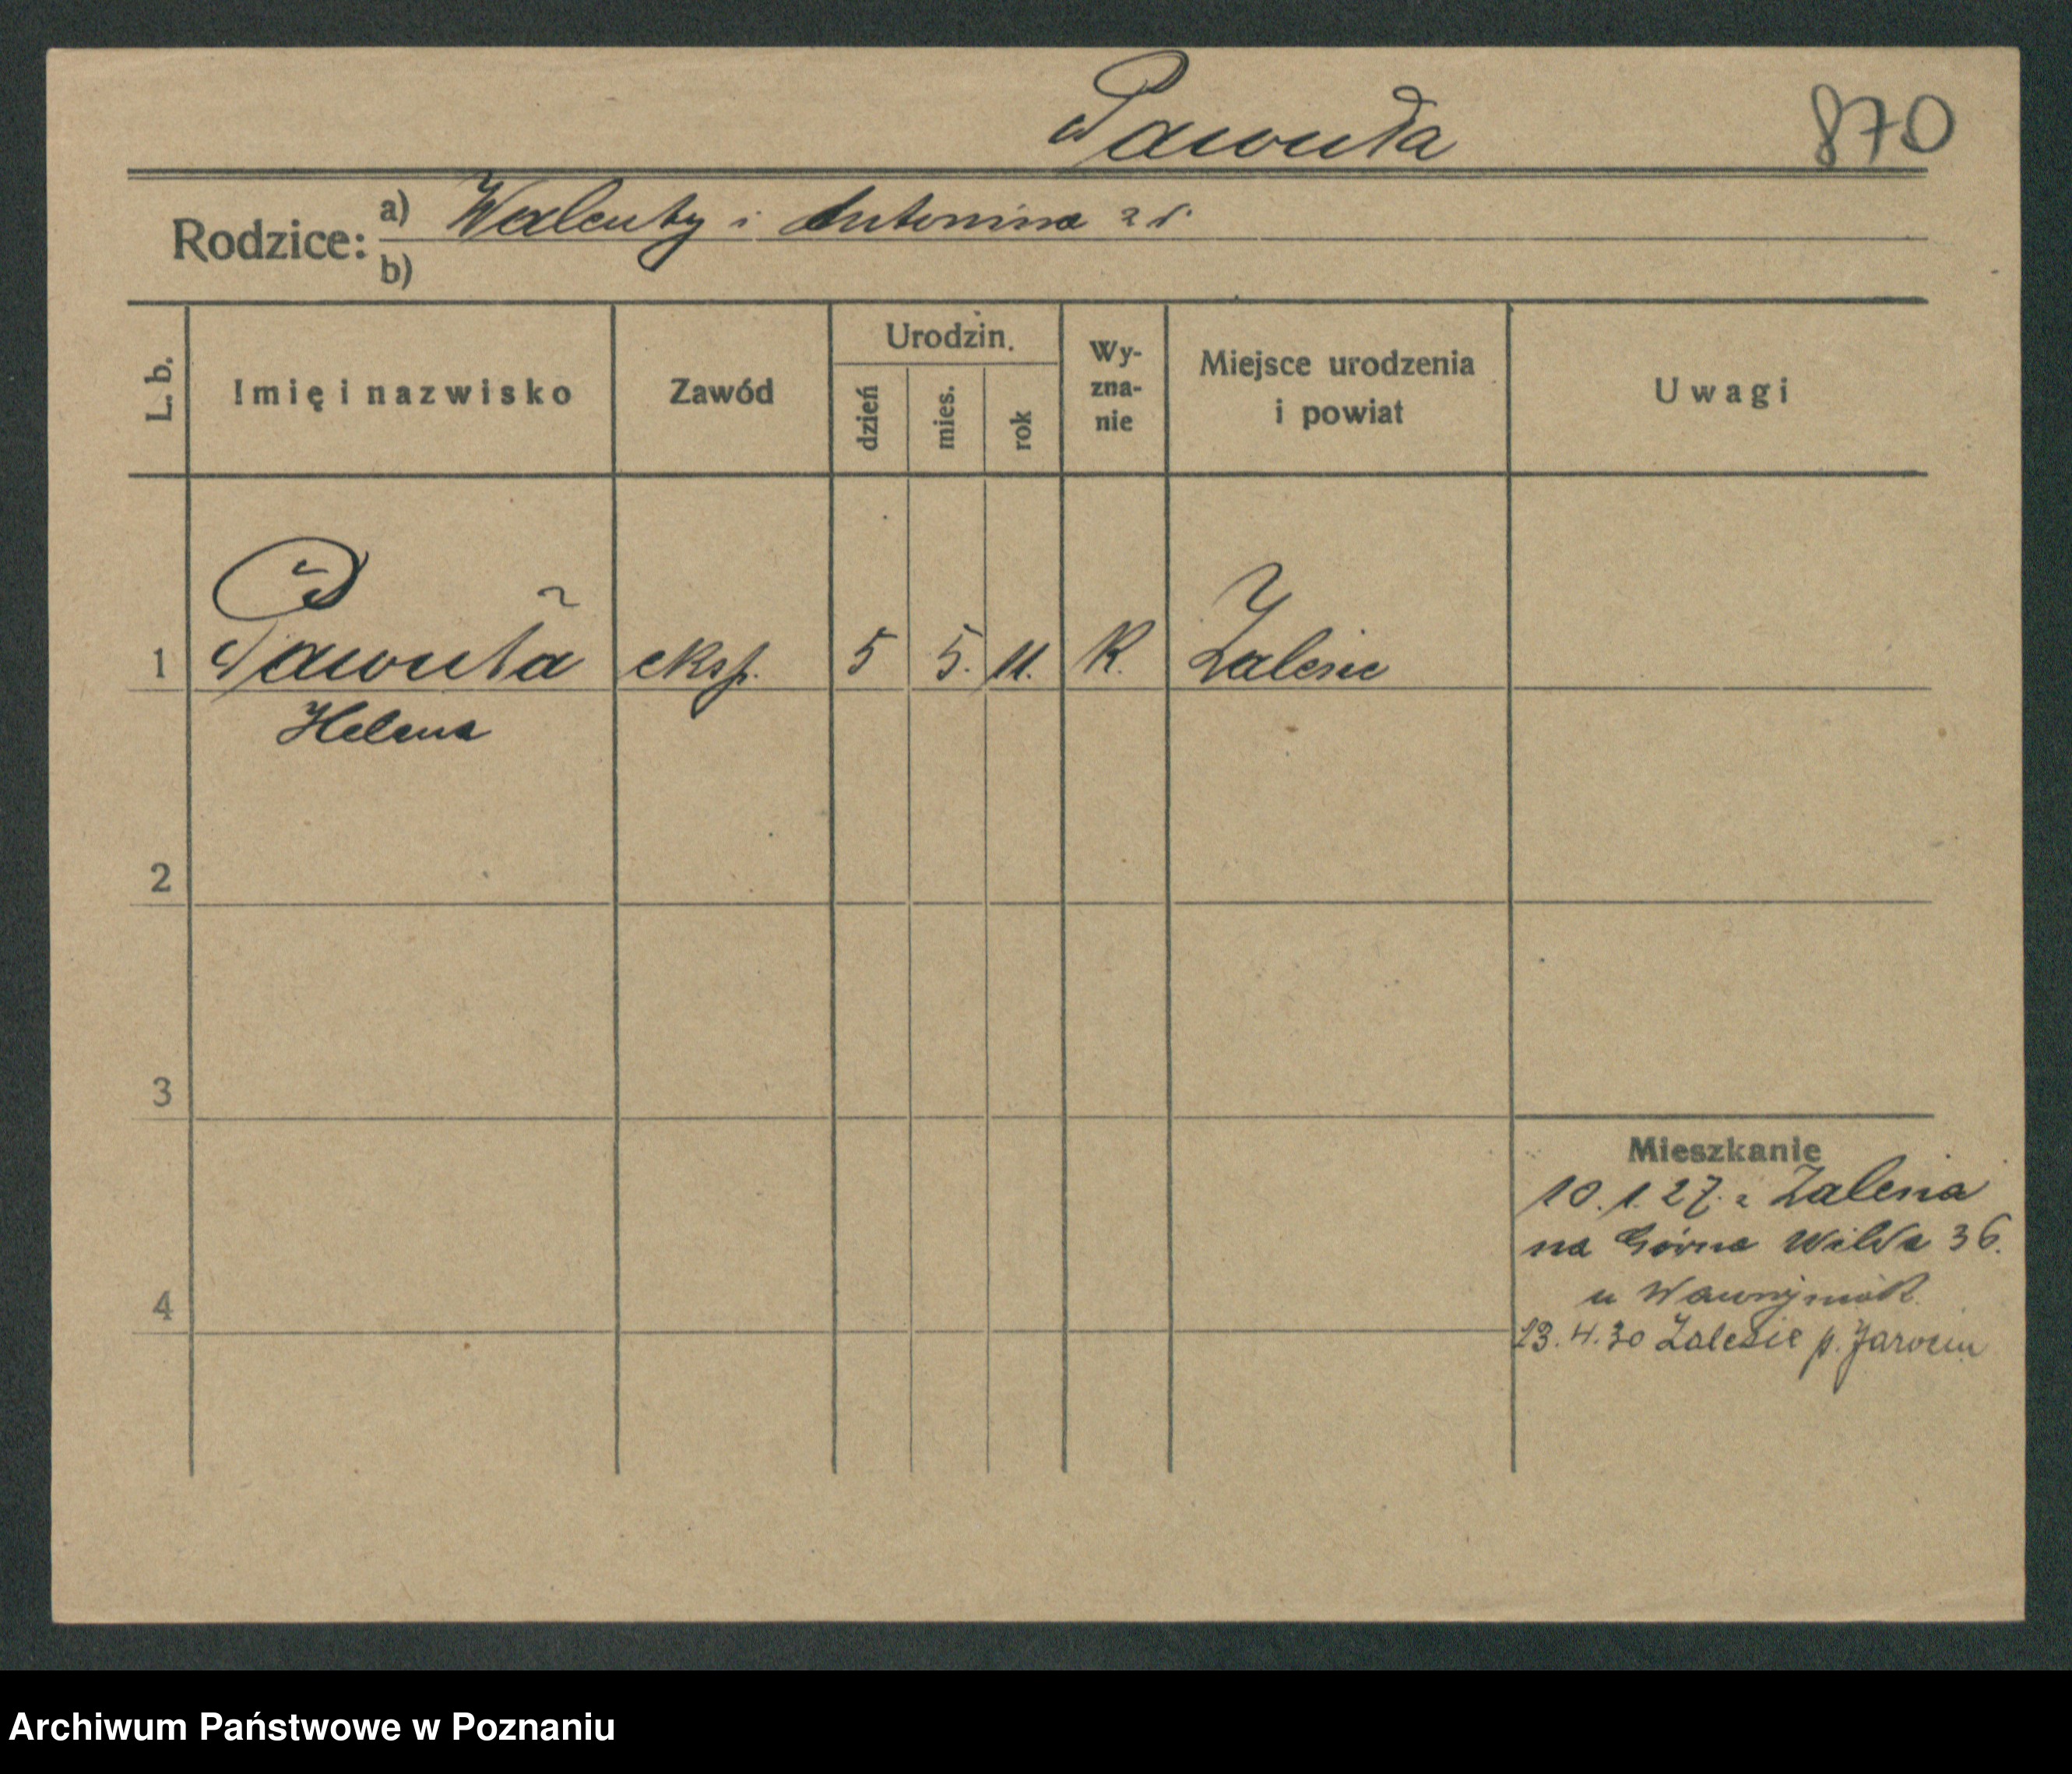 Pawuła 870
Rodzice: a) Walenty i Antonina z d.
b)
L. b. Imię i nazwisko Zawód Urodzin. dzień mies. rok Wy-zna-nie Miejsce urodzenia i powiat Uwagi
1 Pawuła eksp. 5 5. 11. K. Zalesie
Helena
2
3
Mieszkanie
10.1.27. z Zalesia
na Górna Wilda 36.
u
4
23.4.30 Zalesie p. Jarocin
Archiwum Państwowe w Poznaniu